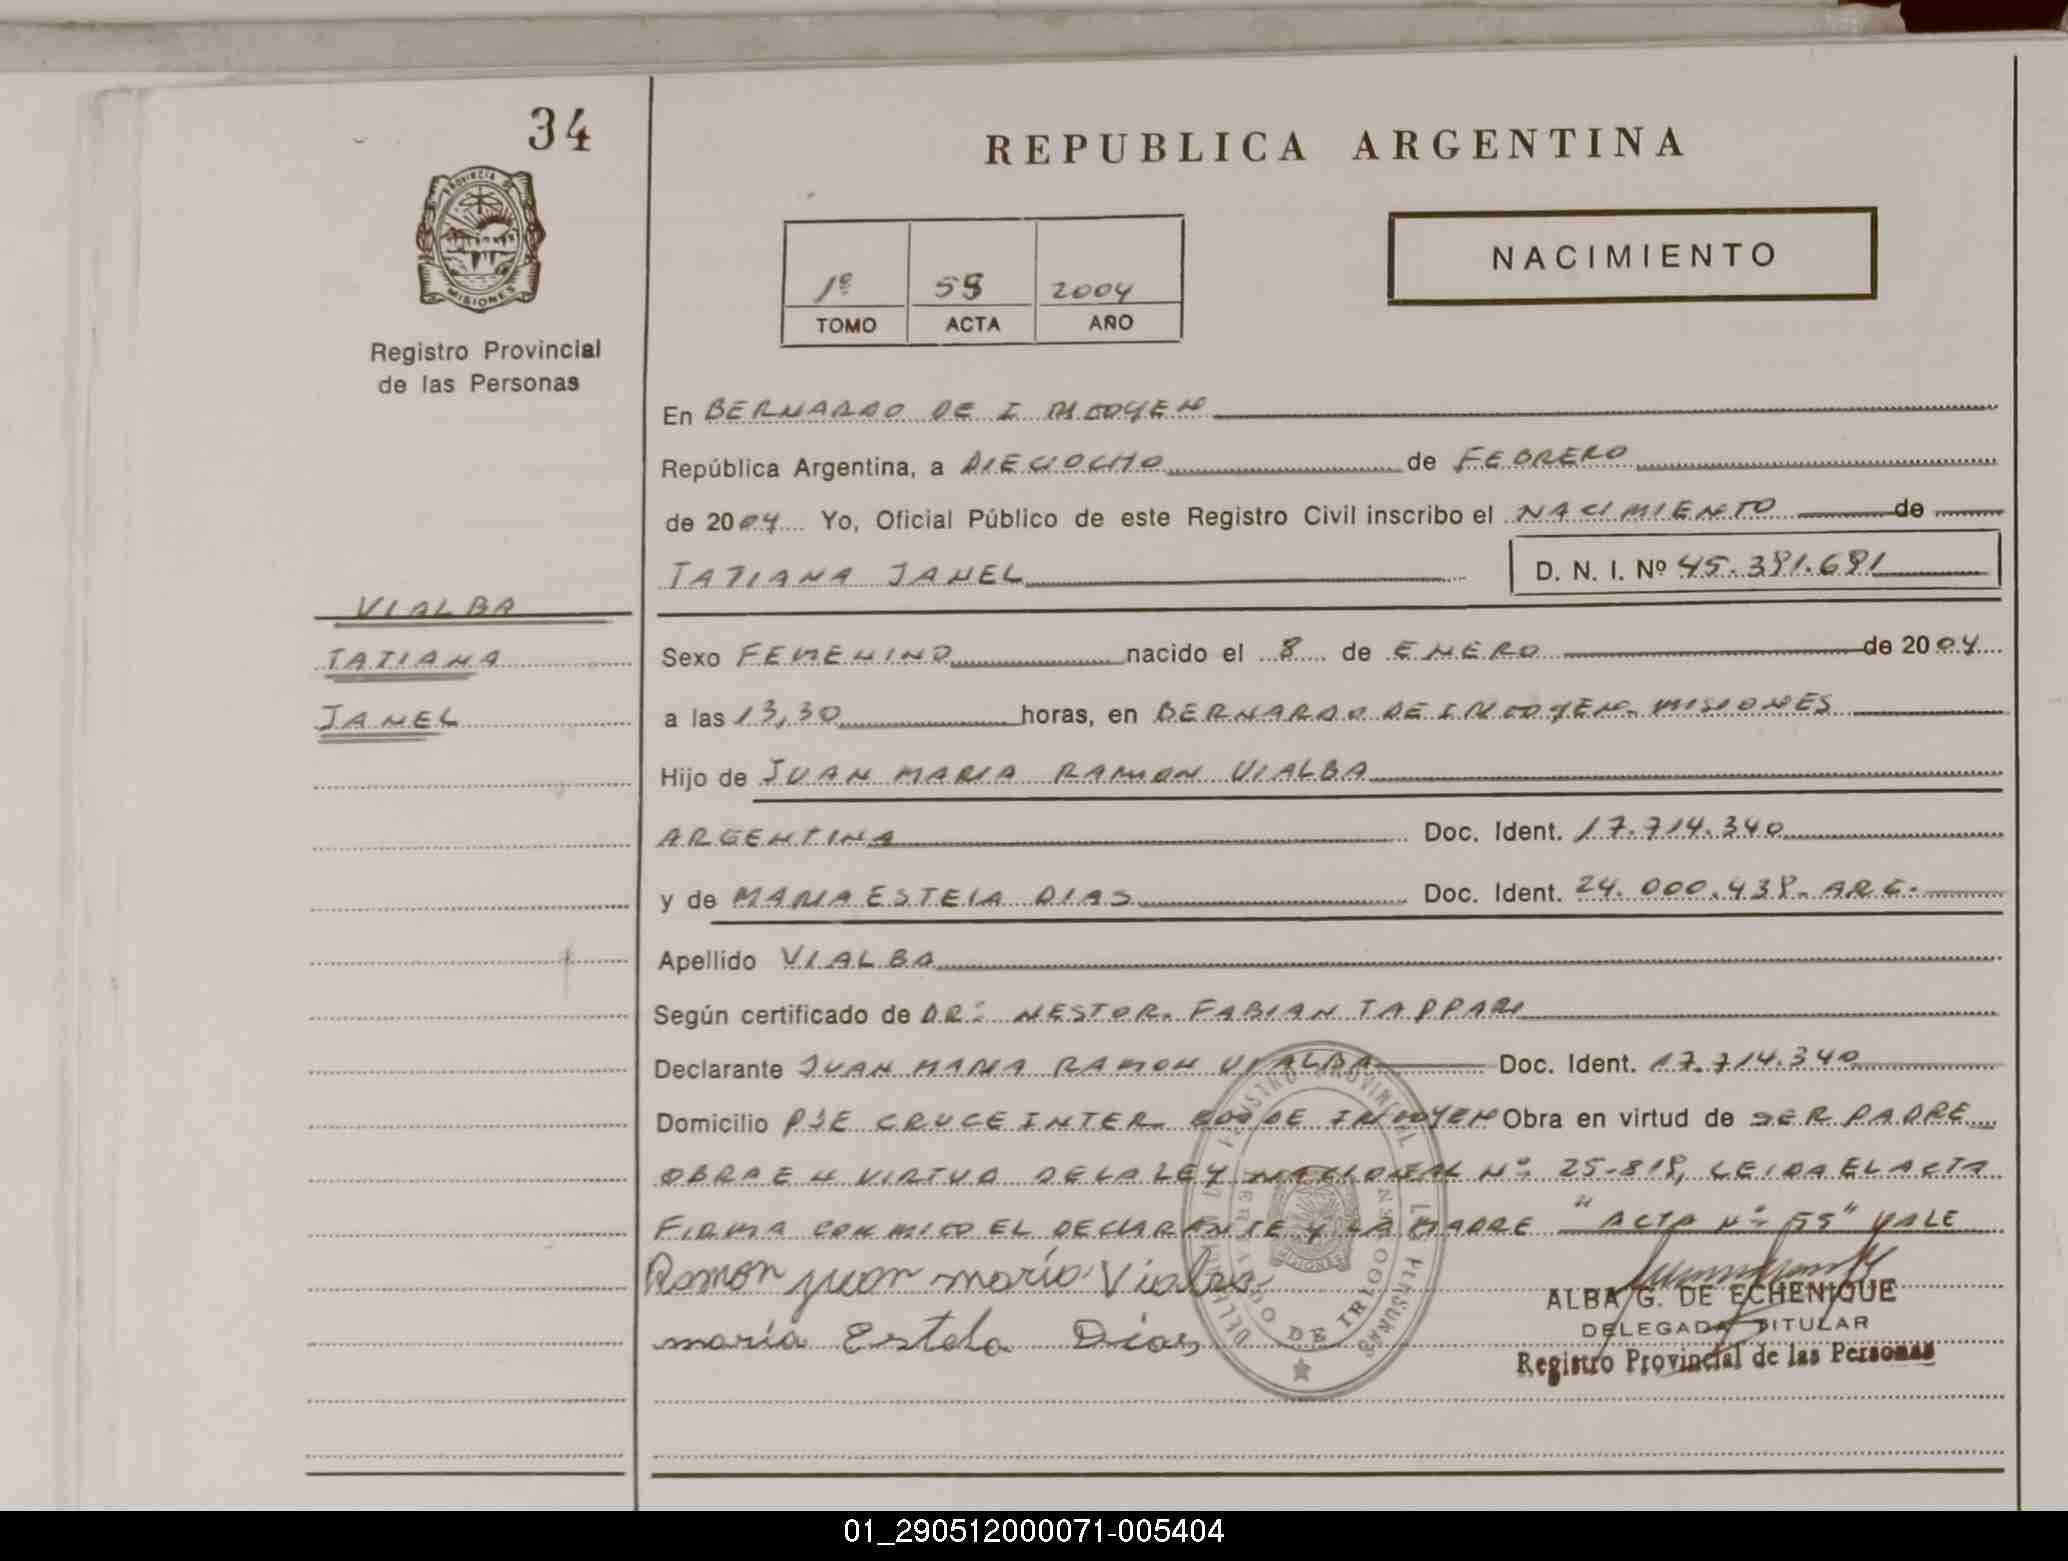 34
PROVINCIA DE
MISIONES
Registro Provincial
de las Personas
REPUBLICA ARGENTINA
1º 2004
TOMO ACTA AÑO
NACIMIENTO
En BERNARDO DE I RIGOYEN
República Argentina, a DIECIOCHO de FEBRERO
de 2004 Yo, Oficial Público de este Registro Civil inscribo el NACIMIENTO de
TATIANA JANEL D. N. I. Nº
VIALBA
TATIANA
JANEL
Sexo FEMENINO nacido el 8 de ENERO de 2004
a las 13,30 horas, en BERNARDO DE IRIGOYEN - MISIONES
Hijo de JUAN MARIA RAMON VIALBA
ARGENTINA Doc. Ident. 17.714.340
y de MARIA ESTELA DIAS Doc. Ident. 24.000.438 - ARG.
Apellido VIALBA
Según certificado de DR: NESTOR FABIAN TAPPARI
Declarante JUAN MARIA RAMON VIALBA Doc. Ident. 17.714.340
Domicilio PJE CRUCE INTER BDO DE IRIGOYEN Obra en virtud de SER PADRE
OBRA EN VIRTUD DE LA LEY NACIONAL Nº 25-818, LEIDA EL ACTA
FIRMA CONMIGO EL DECLARANTE Y LA MADRE "ACTA Nº 55" VALE
Ramon juan maría Vialba
maría Estela Dias
REGISTRO PROVINCIAL DE LAS PERSONAS
BERNARDO DE IRIGOYEN
MISIONES
ALBA G. DE ECHENIQUE
DELEGADA TITULAR
Registro Provincial de las Personas
01_290512000071-005404